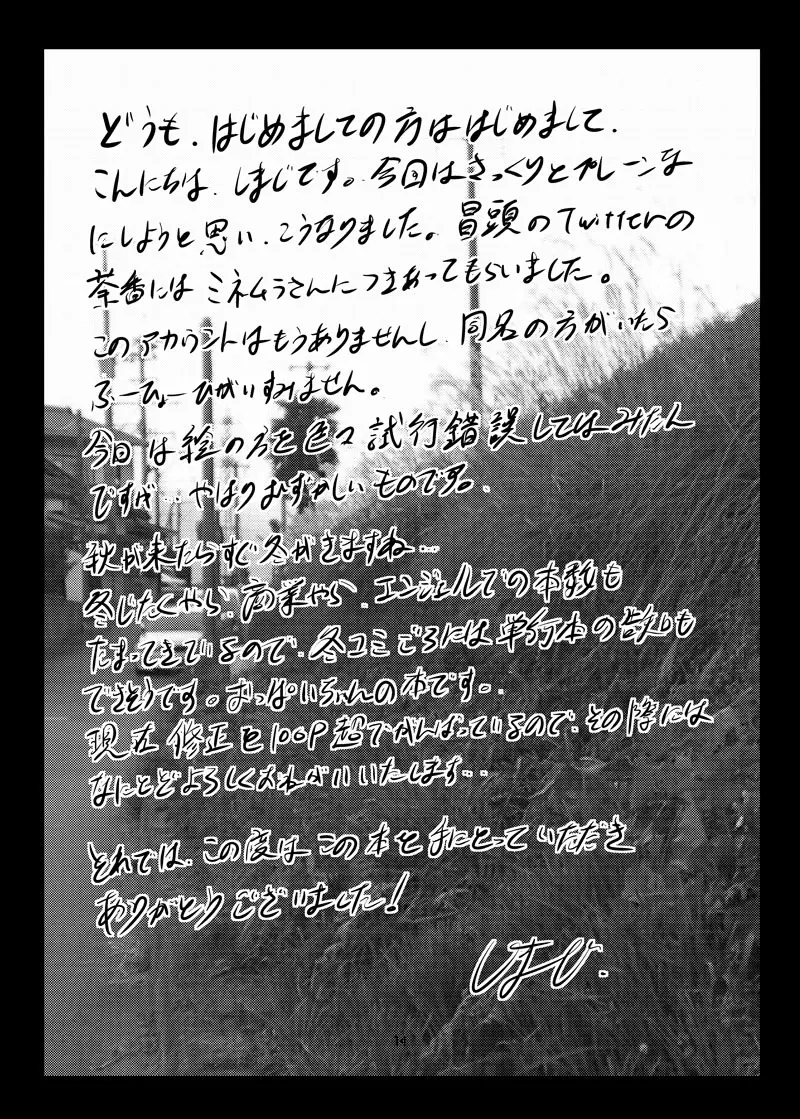 どうも、はじめましての方ははじめまして。
こんにちは、しまじです。今回はさっくりとプレーンな
にしようと思い、こうなりました。冒頭のTwitterの
茶番にはミネムラさんにつきあってもらいました。
このアカウントはもうありませんし、同名の方がいたら
ふーひょーひがいすみません。
今回は絵の方を色々試行錯誤してはみたん
ですが…やはりむずかしいものです。
秋が来たらすぐ冬がきますね…
冬じたくやら、商業やら、エンジェルでの本数も
たまってきているので、冬コミごろには単行本の告知も
できそうです。おっぱいちゃんの本です。
現在修正を100P超でがんばっているので、その際には
なにとぞよろしくおねがいいたします…
それでは、この度はこの本を手にとっていただき
ありがとうございました!
14